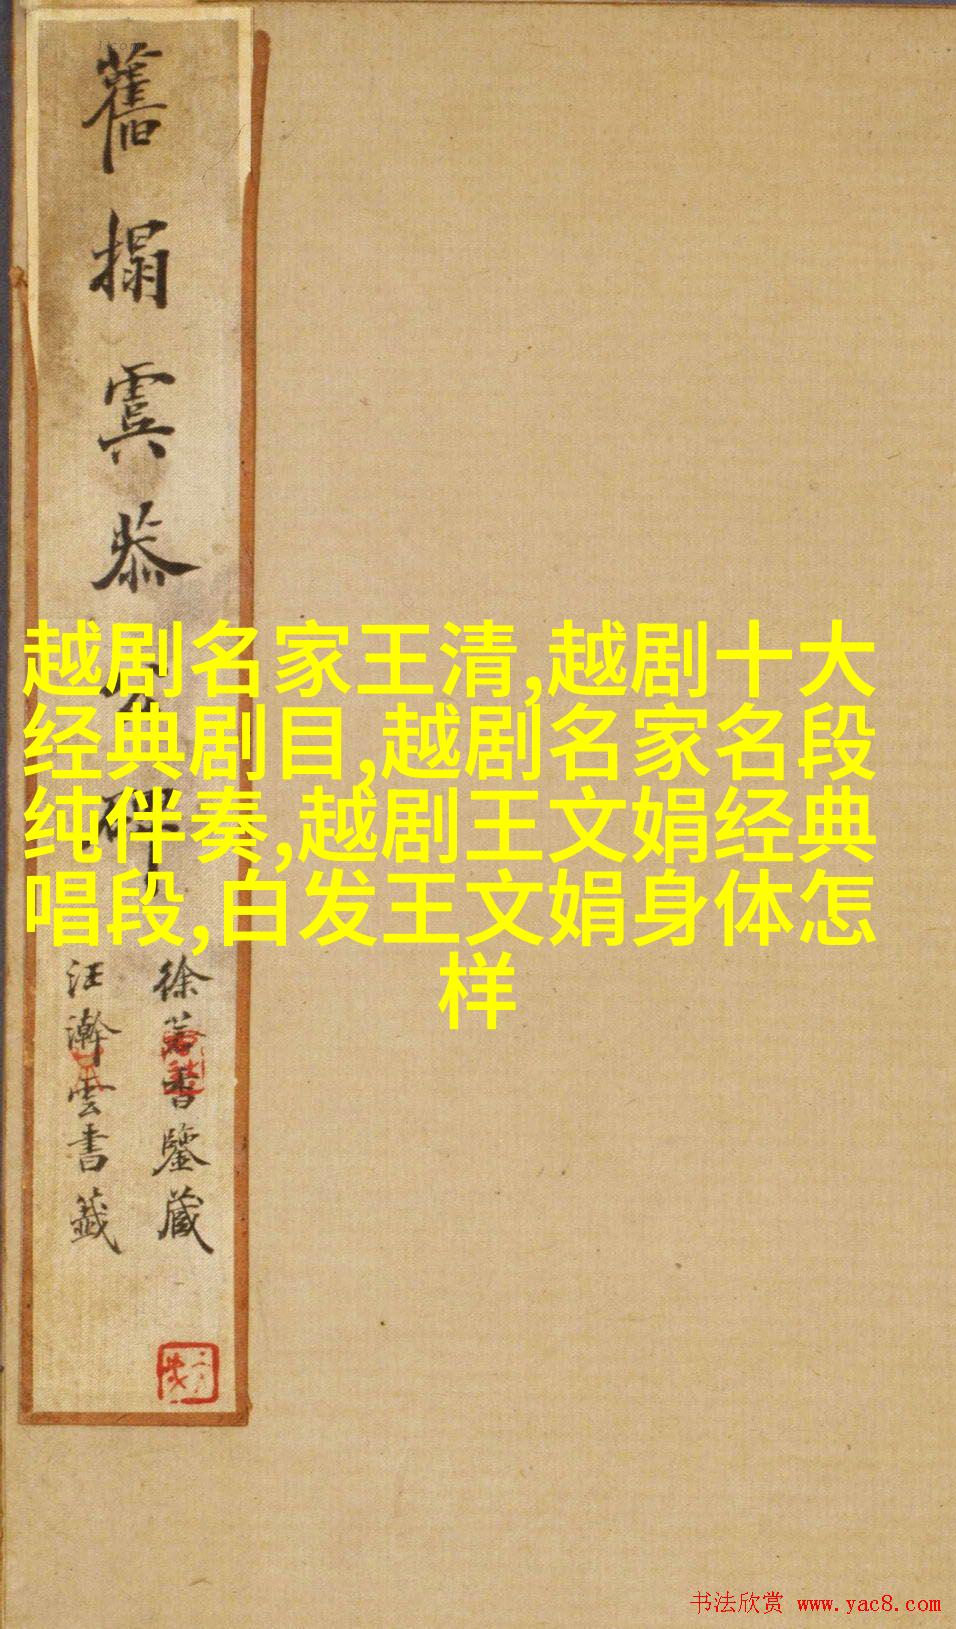 舊搨虞恭公碑
徐若書鑒藏
汪瀚雲書籤
越剧名家王清,越剧十大
经典剧目,越剧名家名段
纯伴奏,越剧王文娟经典
唱段,白发王文娟身体怎
样
书法欣赏 www.yac8.com